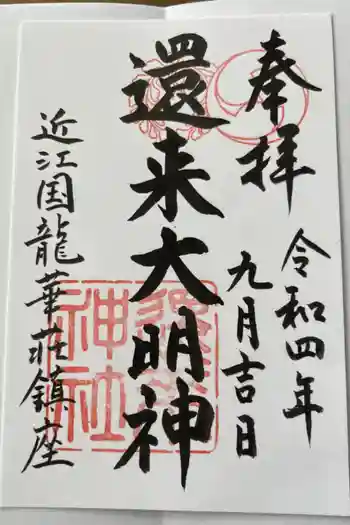 奉拝
令和四年
九月吉日
還来大明神
近江国龍華荘鎮座
還来
神社